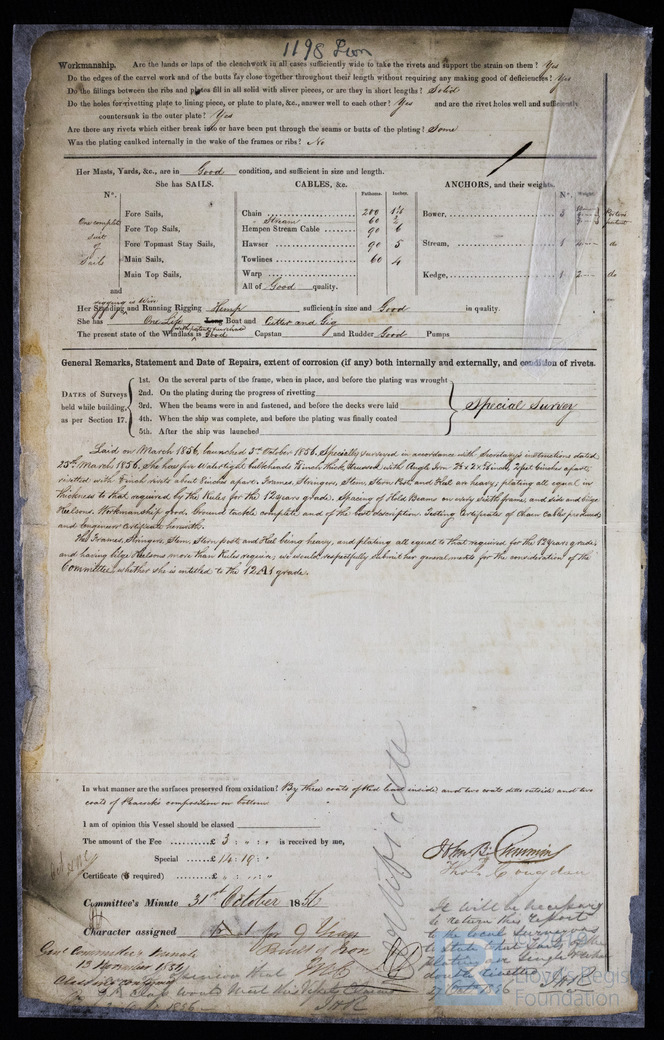 1198 Iron
Workmanship. Are the lands or laps of the clenchwork in all cases sufficiently wide to take the rivets and support the strain on them? Yes
Do the edges of the carvel work and of the butts lay close together throughout their length without requiring any making good of deficiencies? Yes
Do the fillings between the ribs and plates fill in all solid with sliver pieces, or are they in short lengths? Solid
Do the holes for rivetting plate to lining piece, or plate to plate, &c., answer well to each other? Yes and are the rivet holes well and sufficiently
countersunk in the outer plate? Yes
Are there any rivets which either break into or have been put through the seams or butts of the plating? Some
Was the plating caulked internally in the wake of the frames or ribs? No
Her Masts, Yards, &c., are in Good condition, and sufficient in size and length.
She has SAILS. CABLES, &c. ANCHORS, and their weights.
N°. Fathoms. Inches. N°. Weight
One complete Suit of Sails
Fore Sails, Chain 200 Bower, 3
Stream 60
Fore Top Sails, Hempen Stream Cable 90 6
Fore Topmast Stay Sails, Hawser 90 5 Stream, 1 do
Main Sails, Towlines 60 4
Main Top Sails, Warp Kedge, 1 2 do
and All of Good quality.
rigging is Wire
Her Standing and Running Rigging Hemp sufficient in size and Good in quality.
She has One Life Long Boat and Cutter and Gig
with patent purchase
The present state of the Windlass is Good Capstan and Rudder Good Pumps
General Remarks, Statement and Date of Repairs, extent of corrosion (if any) both internally and externally, and condition of rivets.
DATES of Surveys held while building, as per Section 17.
1st. On the several parts of the frame, when in place, and before the plating was wrought
2nd. On the plating during the progress of rivetting
3rd. When the beams were in and fastened, and before the decks were laid Special Survey
4th. When the ship was complete, and before the plating was finally coated
5th. After the ship was launched
Laid on March 1856, launched 3rd October 1856. Specially surveyed in accordance with Secretary's instructions dated
25th March 1856. She has four Watertight bulkheads thick, secured with Angle Iron 2 feet 6 inches apart,
rivetted with inch rivets about inches apart. Frames, Stringers, Stem, Stern Post, and Keel are heavy; plating all equal in
thickness to that required by the Rules for the 12 years grade. Spacing of Hold Beams on every sixth frame, and side and bilge
Kelsons. Workmanship good. Ground tackle complete and of the best description. Testing Certificates of Chain Cables produced
and Engineers Certificate herewith.
The Frames, Stringers, Stem, Stern post and Keel being heavy, and plating all equal to that required for the 12 Years grade,
and having bilge Kelsons more than Rules require, we would respectfully submit her general merits for the consideration of the
Committee, whether she is entitled to the 12 A1 grade.
In what manner are the surfaces preserved from oxidation? By three coats of Red lead inside, and two coats ditto outside and two
coats of Peacock's composition on bottom
I am of opinion this Vessel should be classed
The amount of the Fee £ 3 : " : " is received by me,
Special £ 14 : 10 : "
Certificate (if required) £ " : " : "
Certificate
Committee's Minute 31st October 1856
Character assigned A 1 for 9 Years
Built of Iron
Genl Committee's Minute
13 November 1856
It will be necessary
to return this report
to the local Surveyors
to state what parts of the
plating are single & what
double rivetted
27 Oct 1856
Lloyd's Register
Foundation